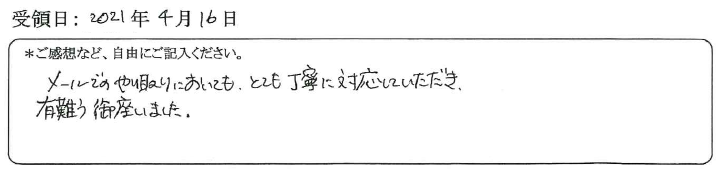 受領日: 2021年4月16日
*ご感想など、自由にご記入ください。
メールでのやり取りにおいても、とても丁寧に対応していただき、
有難う御座いました。